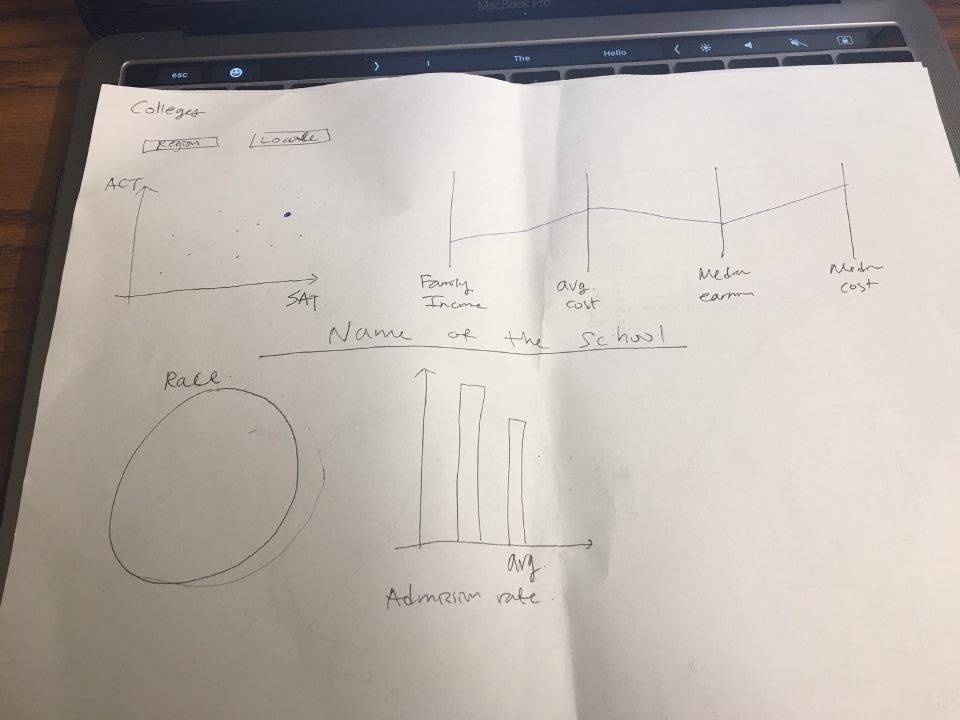 MacBook Pro
esc
I
The
Hello
Colleges
Region
Locale
ACT
SAT
Family
Income
avg.
cost
Median
earnin
Median
cost
Name of the School
Race
avg
Admission rate.